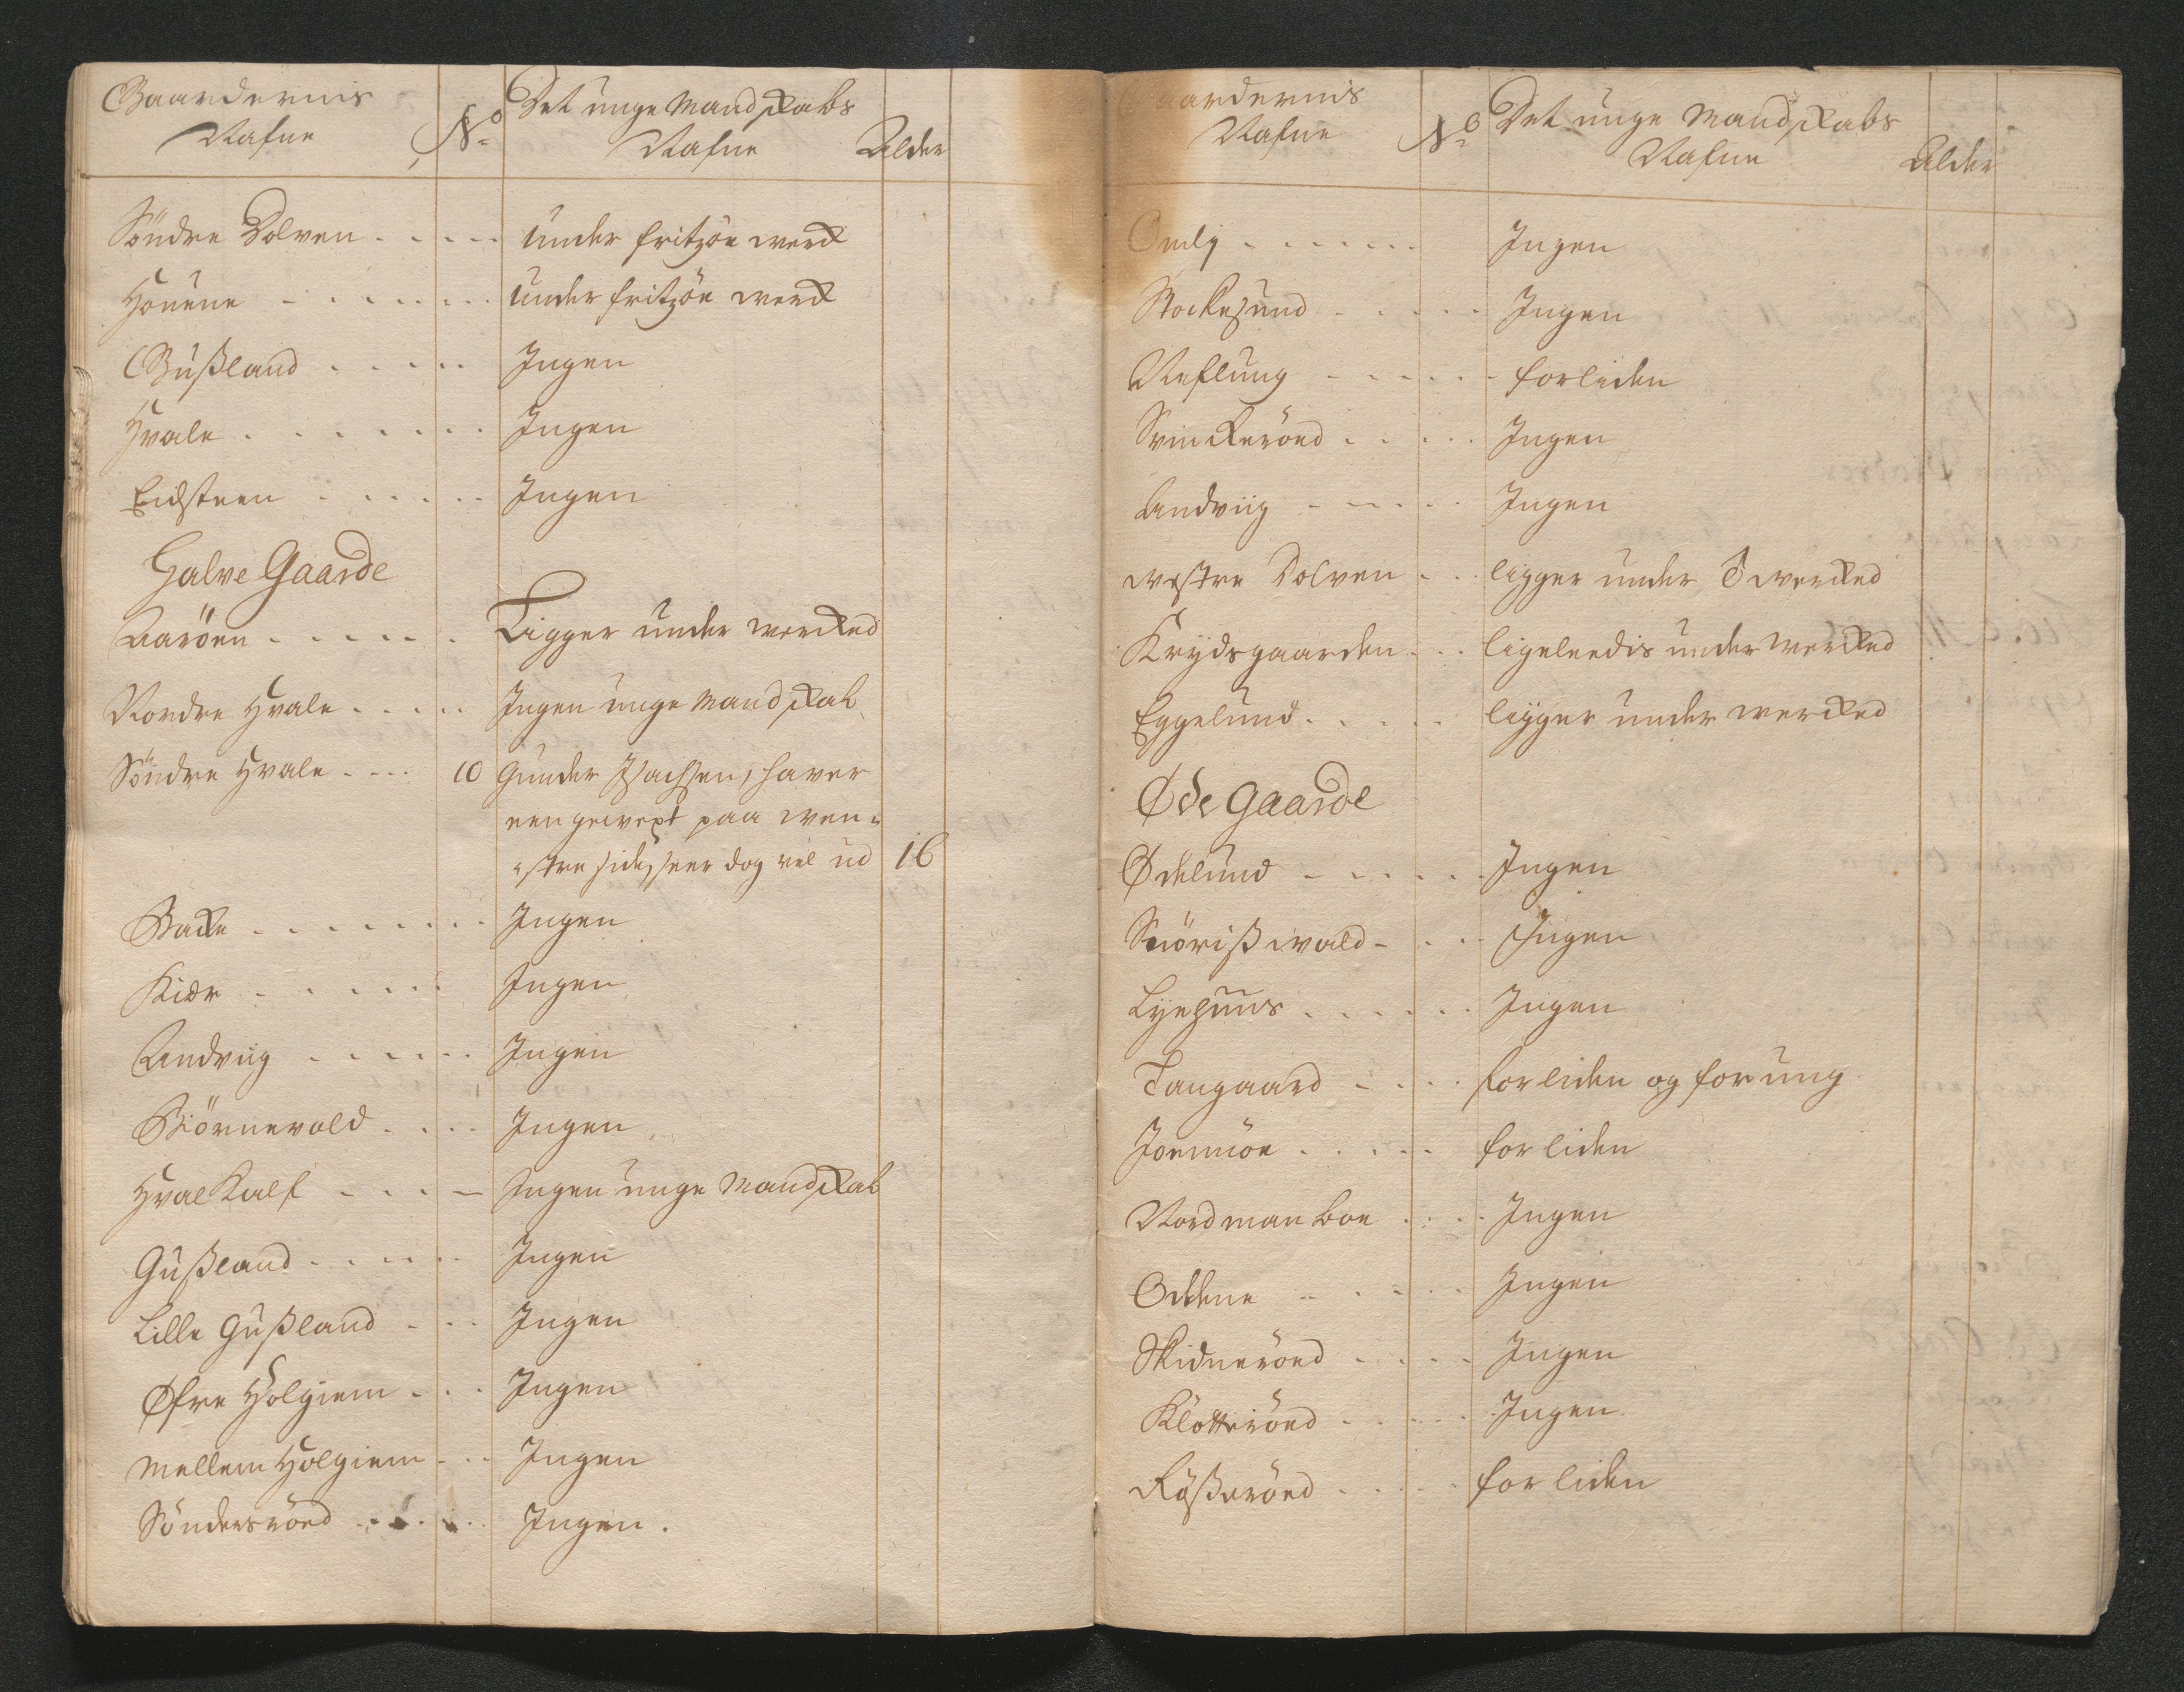 Gaardernis Nafne No Det unge Mandskabs Nafne Alder
Söndre Dolven . . . . . Under fritzöe werck
Houene - . . . . . . Under fritzöe werck
Gußland . . . . . Ingen
Hvale . . . . . . . Ingen
Eidsteen . . . . . . Ingen
Halve Gaarde
Aaröen - . . . . . Ligger under wercked
Nordre Hvale . . . . . Ingen unge Mandskab
Söndre Hvale - - . . 10 Gunder Isachsen, haver
een gewext paa wen=
=stre side, seer dog vel ud 16
Backe . . . . . . . . Ingen
Kiær - . . . . . Ingen
Andviig . . . . . . Ingen
Biörnevold . . . . Ingen
Hval Kalf - . . . - Ingen unge Mandskab
Gußland . . . . . Ingen
Lille Gußland - . . Ingen
Øfre Holgiem . . . Ingen
Mellem Holgiem - . . Ingen
Söndersröed . . . . . Ingen .
aardernis Nafne No Det unge Mandskabs Nafne Alder
Omly - . . . . . . Ingen
Stockesund - . . . . Ingen
Neflung - . . . . - forliden
Svinckeröed . . . . . Ingen
Andviig - - . . . Ingen
westre Dolven . . . ligger under wercked
Krydsgaarden . . . ligeleedis under Wercked
Eggelund . . . . . ligger under wercked
Øde Gaarde
Ødelund - . . . . . Ingen
Snörißwald - . . . Ingen
Lyehuus . . . . . . Ingen
Tangaard - . . . for liden og for ung
Joenmöe . . . . . for liden
Nordmanboe . . . . Ingen
Oddene - . . . . Ingen
Skidneröed . . . . . Ingen
Klötteröed - . . . . Ingen
Rößeröed . . . . . for liden